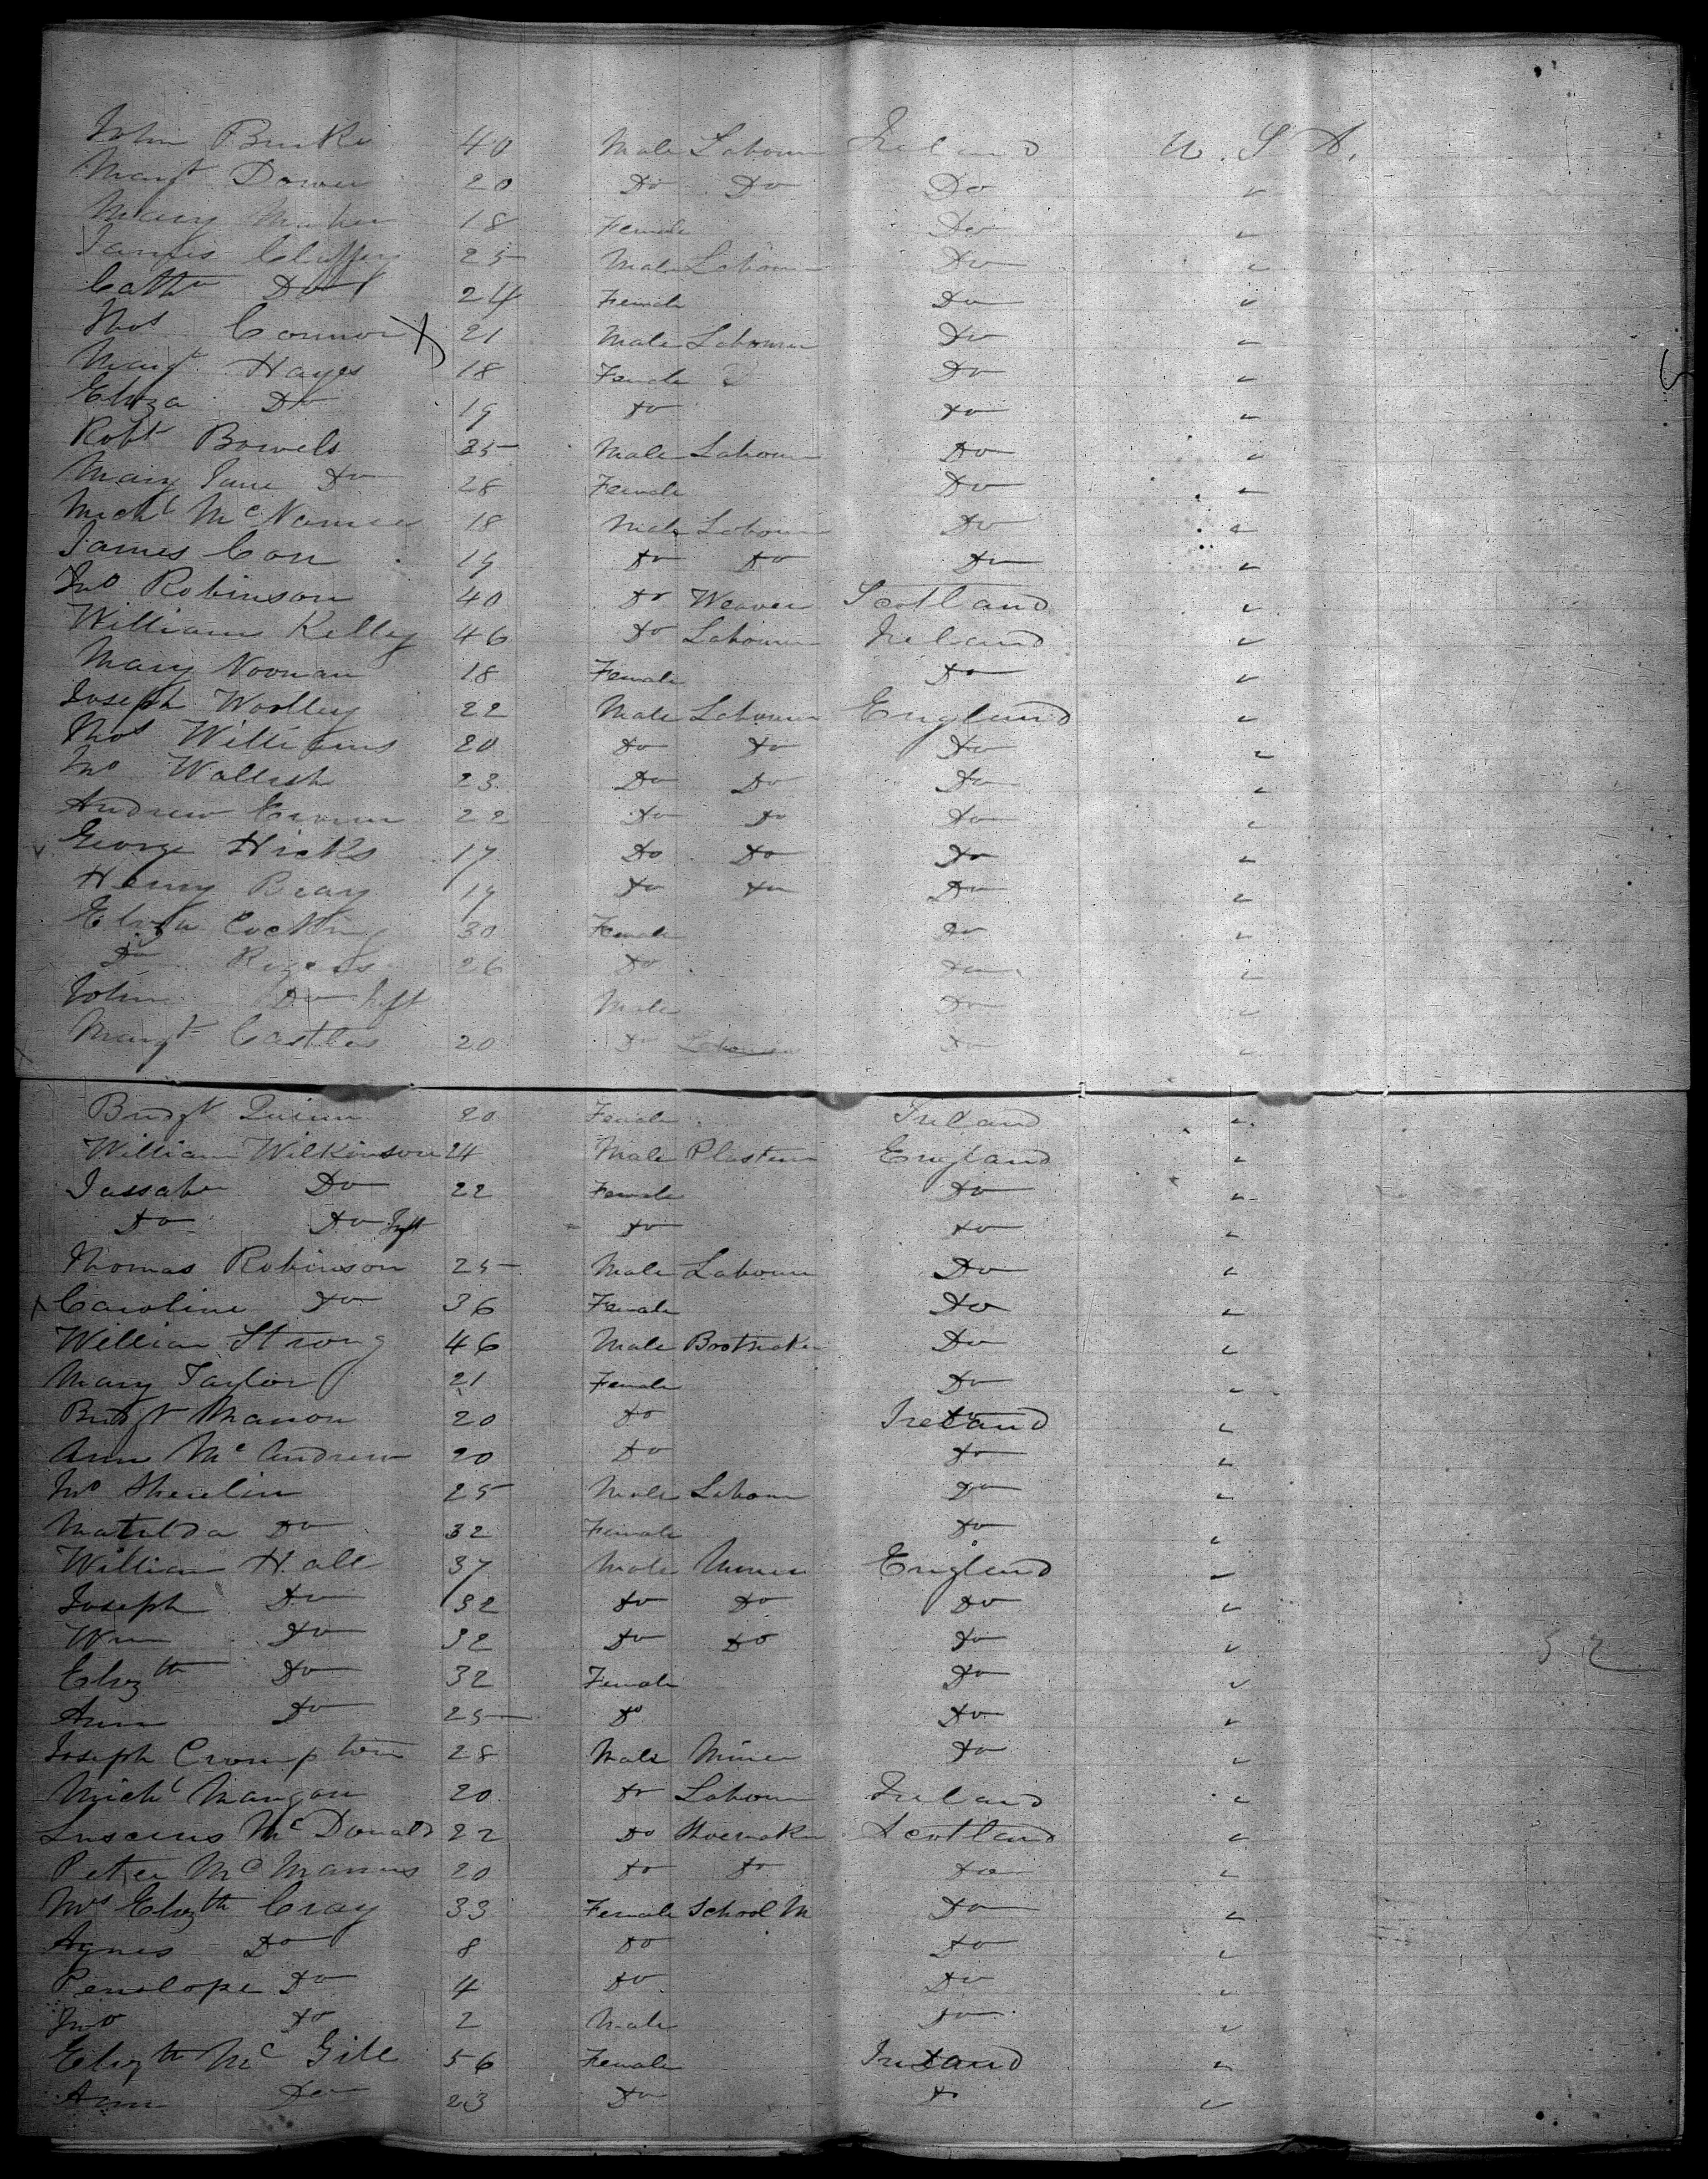 John Burke 40 Male Labourer Ireland U. S A.
Margt Dower 20 Do Do Do "
Mary Maher 18 Female Do "
James Claffey 25 Male Labourer Do "
Cathe Do 24 Female Do "
Thos Connor X 21 Male Labourer Do "
Margt Hayes 18 Female Do "
Eliza Do 19 Do Do "
Robt Bowels 35 Male Labourer Do "
Mary Jane Do 28 Female Do "
Michl McNamee 18 Male Labourer Do "
James Con 19 Do Do Do "
Jno Robinson 40 Do Weaver Scotland "
William Kelley 46 Do Labourer Ireland "
Mary Noonan 18 Female Do "
Joseph Woolley 22 Male Labourer England "
Thos Williams 20 Do Do Do "
Jno Wallish 23 Do Do Do "
Andrew 22 Do Do Do "
George Hicks 17 Do Do Do "
Henry Bray 19 Do Do Do "
Eliza Cocking 30 Female Do "
Do Rogers 26 Do Do "
John Do Inft Male Do "
Margt Castles 20 Do Labourer Do "
Bridgt Quinn 20 Female Ireland "
William Wilkinson 24 Male Plasterer England "
Do 22 Female Do "
Do Do Inft Do Do "
Thomas Robinson 25 Male Labourer Do "
Caroline Do 36 Female Do "
William Strong 46 Male Bootmaker Do "
Mary Taylor 21 Female Do "
Bridgt Manon 20 Do Ireland "
Ann McAndrew 20 Do Do "
Jno 25 Male Labour Do "
Matilda Do 32 Female Do "
William Hall 37 Male Miner England "
Joseph Do 32 Do Do Do "
Wm Do 32 Do Do Do "
Elizth Do 32 Female Do "
Ann Do 25 Do Do "
Joseph Crompton 28 Male Miner Do "
Michl Mangan 20 Do Labour Ireland "
McDonald 22 Do Shoemaker Scotland "
Peter McManus 20 Do Do Do "
Mrs Elizth Cray 33 Female School M Do "
Agnes Do 8 Do Do "
Penelope Do 4 Do Do "
Jno Do 2 Male Do "
Elizth Mc Gill 56 Female Ireland "
Ann Do 23 Do Do "
52